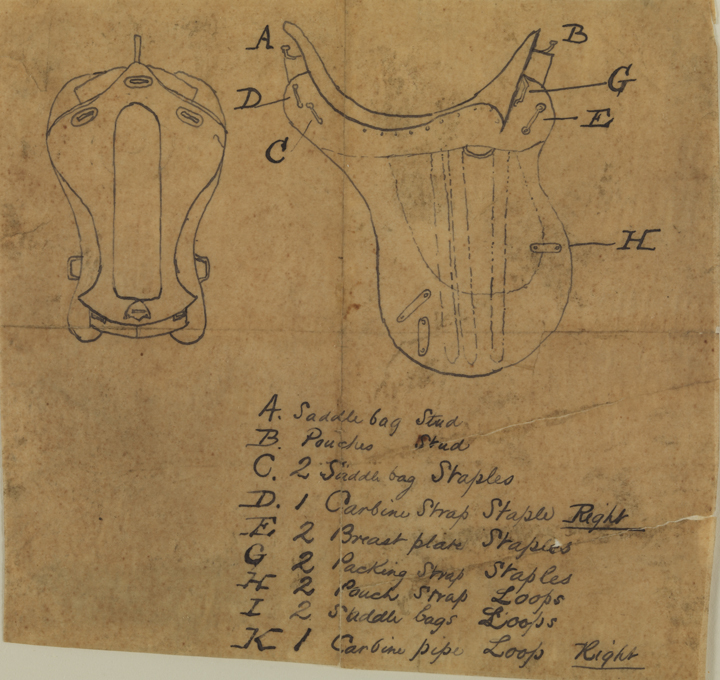 A
B
G
D
E
C
H
A. Saddle bag Stud
B. Pouches Stud
C. 2 Saddle bag Staples
D. 1 Carbine Strap Staple Right
E 2 Breast plate Staples
G 2 Packing Strap Staples
H 2 Pouch Strap Loops
I 2 Saddle bags Loops
K 1 Carbine pipe Loop Right